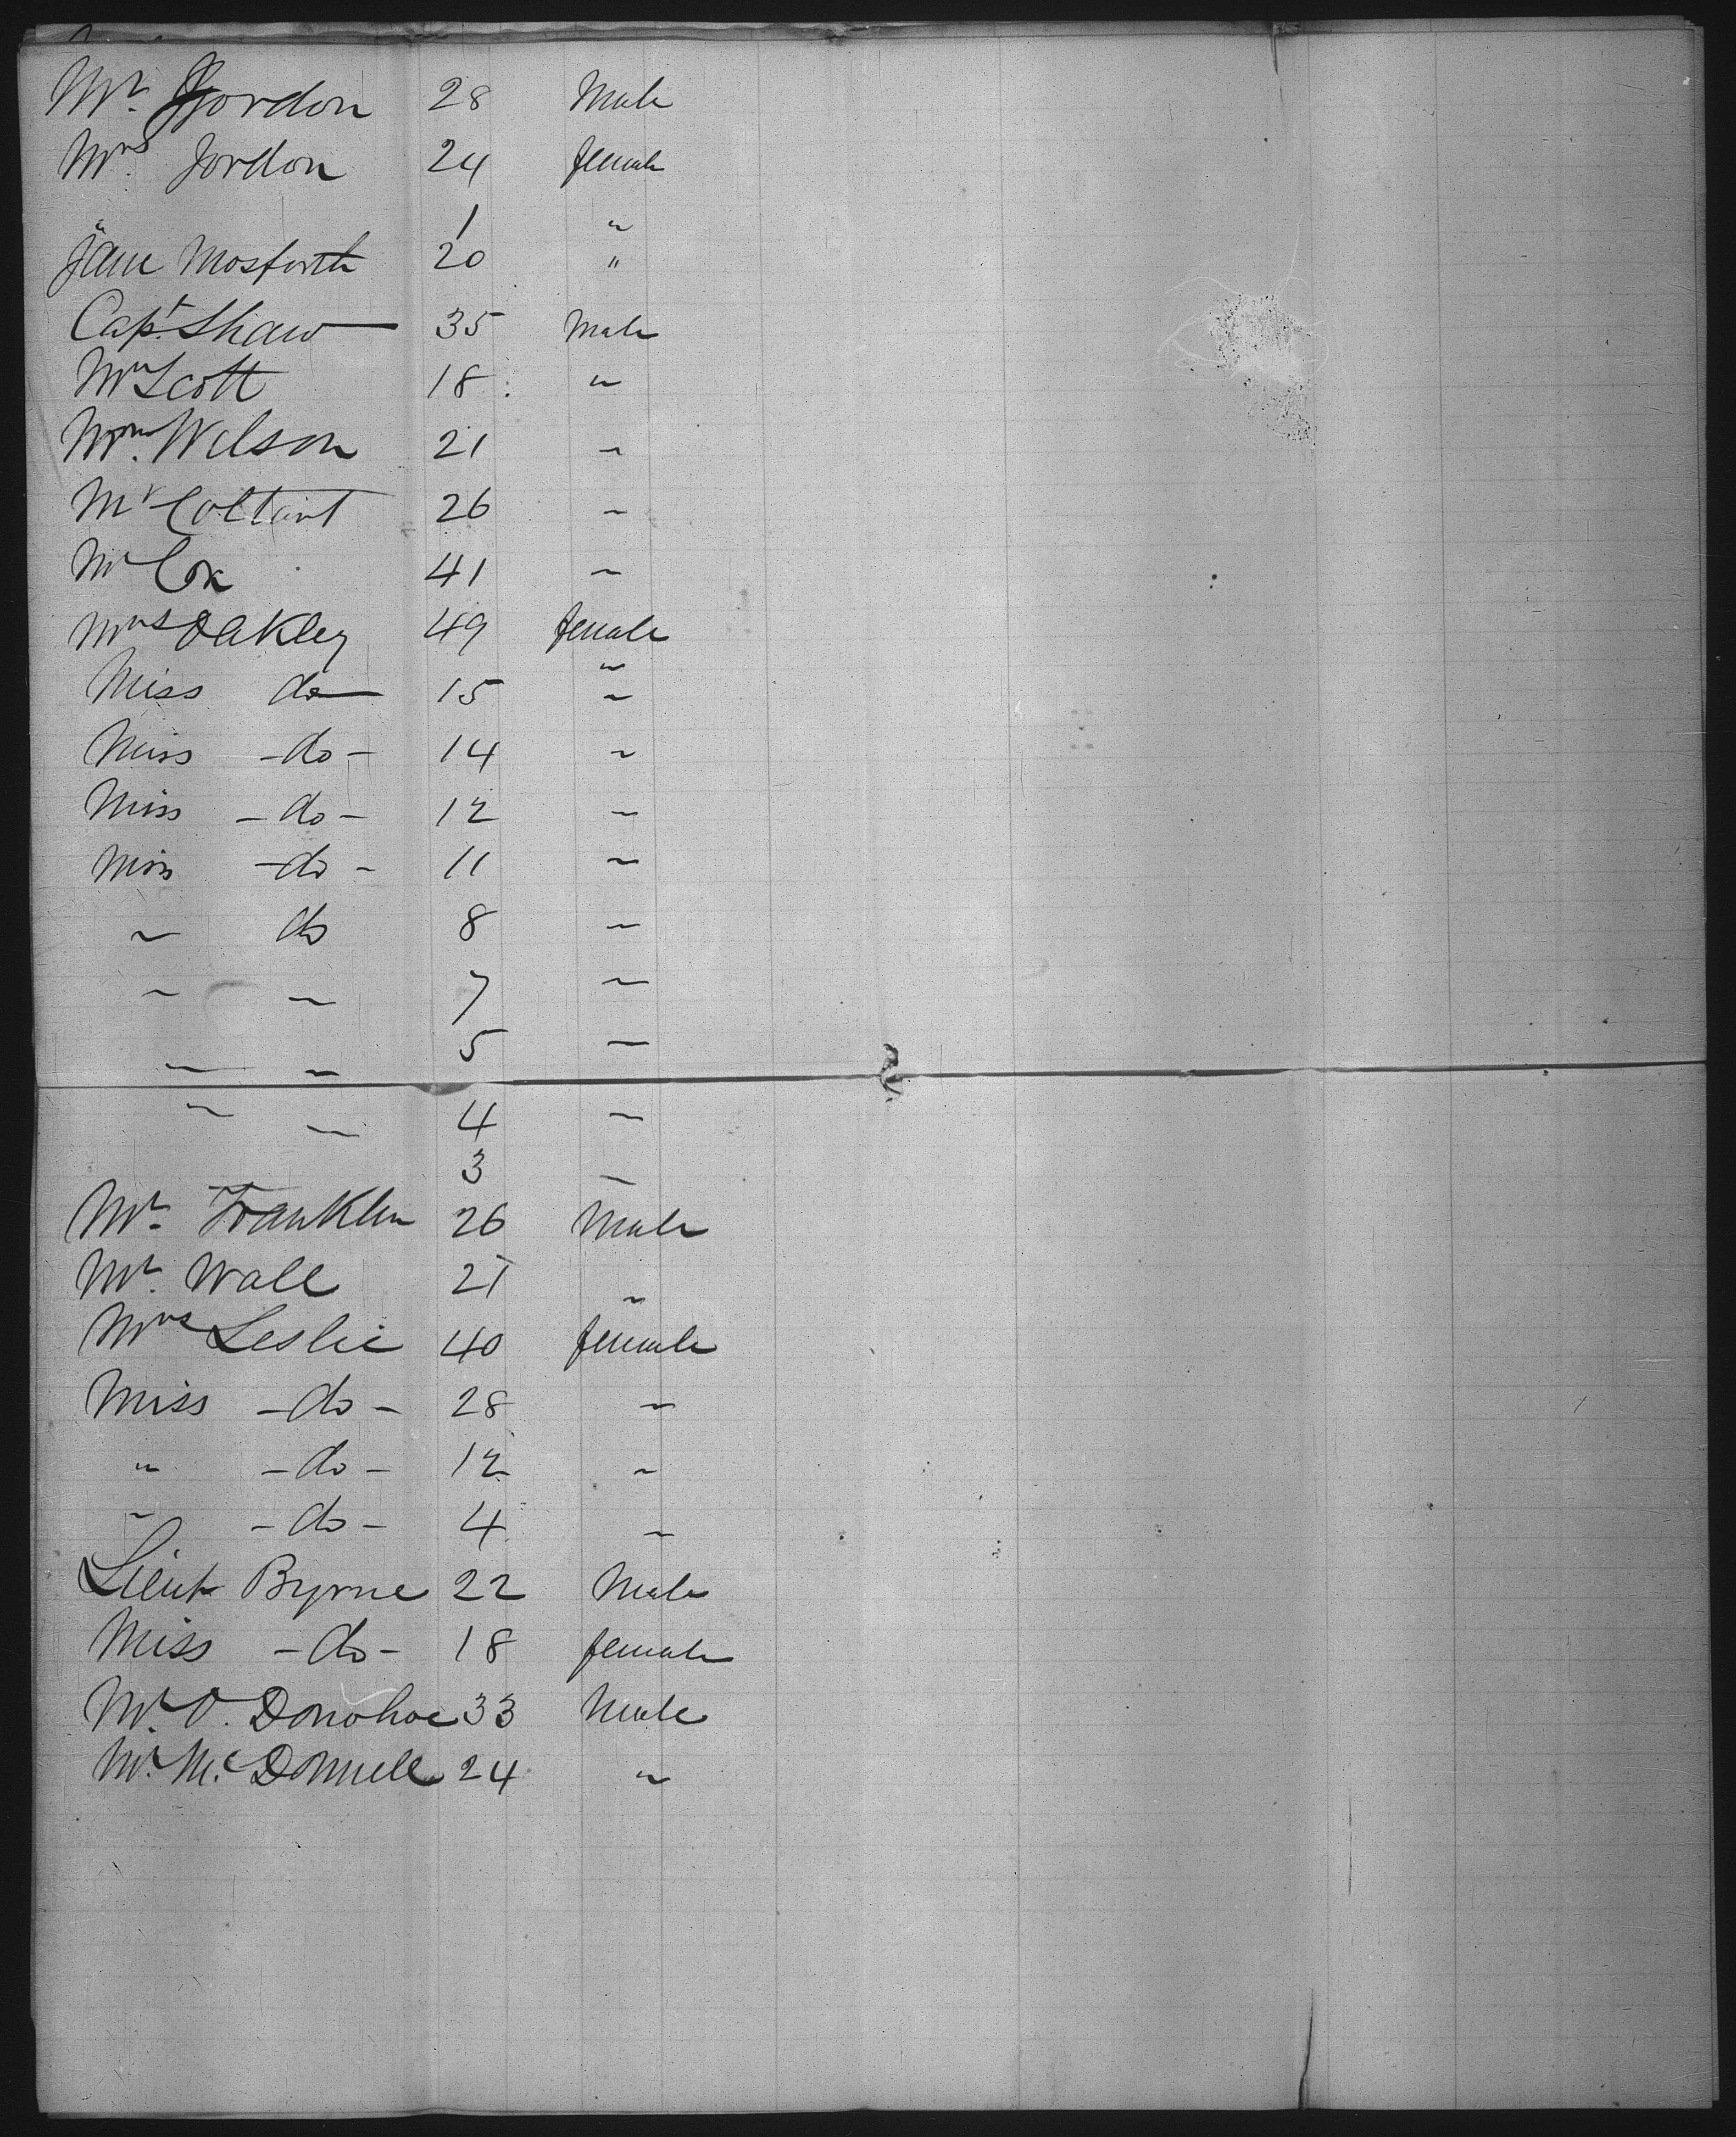 Mr. Jordon 28 Male
Mrs. Jordon 24 female
" 1 "
Jane Mosforth 20 "
Capt. Shaw 35 Male
Mr Scott 18 "
Wm. Wilson 21 "
Mr Coltart 26 "
Mr Cox 41 "
Mrs Oakley 49 female
"
Miss do 15 "
Miss - do - 14 "
Miss - do - 12 "
Miss - do - 11 "
" do 8 "
" " 7 "
" " 5 "
" " 4 "
3 "
Mr. Franklin 26 Male
Mr. Wall 21 "
Mrs Leslie 40 female
Miss - do - 28 "
" - do - 12 "
" - do - 4 "
Lieut Byrne 22 Male
Miss - do - 18 female
Mr. O. Donohoe 33 Male
Mr. Mc Donnell 24 "